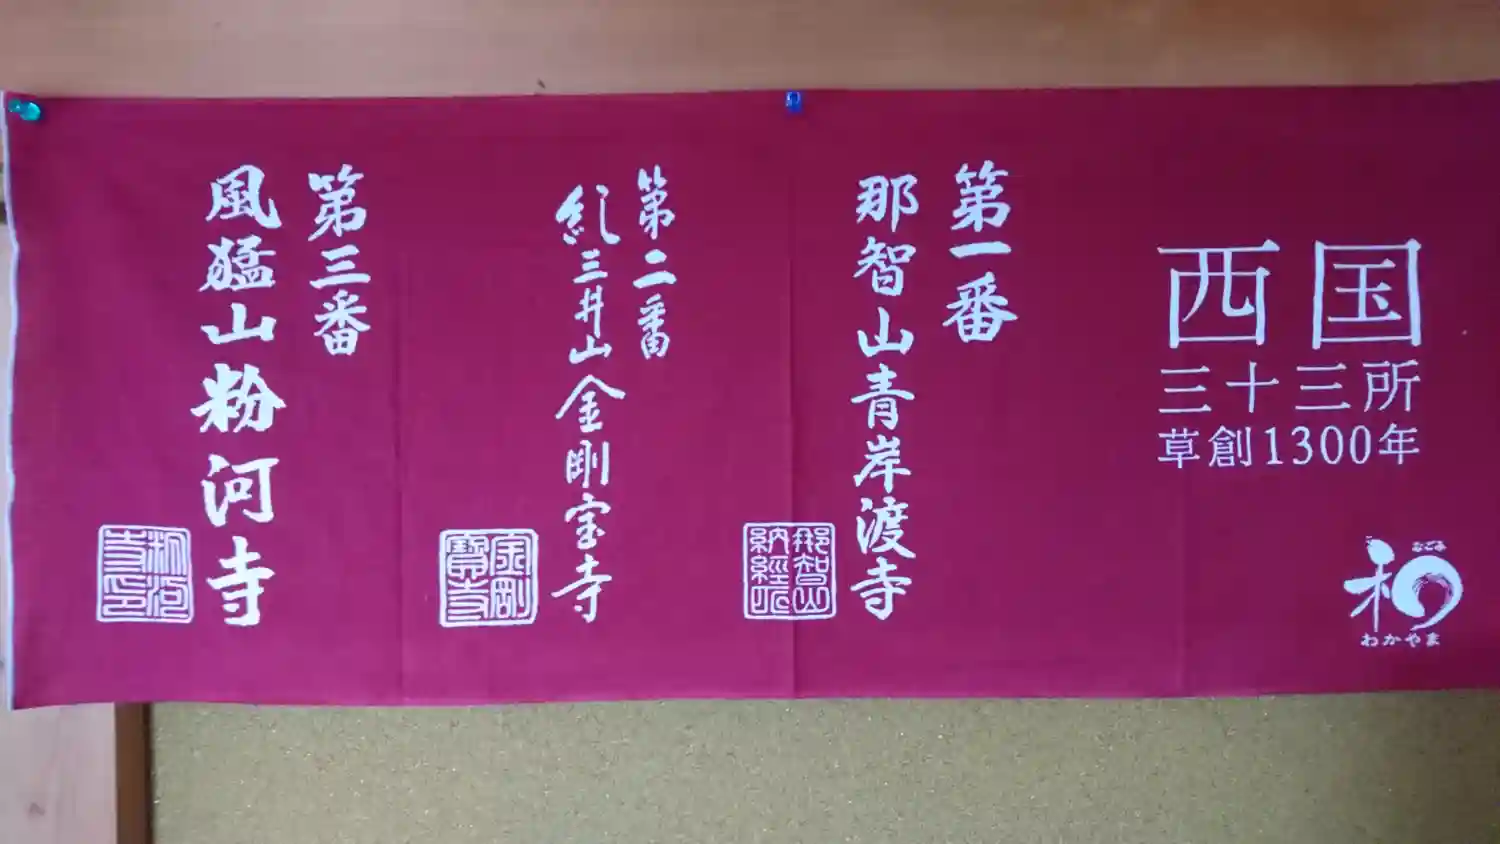 西国
三十三所
草創1300年
和
なごみ
わかやま
第一番
那智山青岸渡寺
那智山
納経印
第二番
紀三井山金剛宝寺
金剛
寶寺
第三番
風猛山粉河寺
粉河
寺印